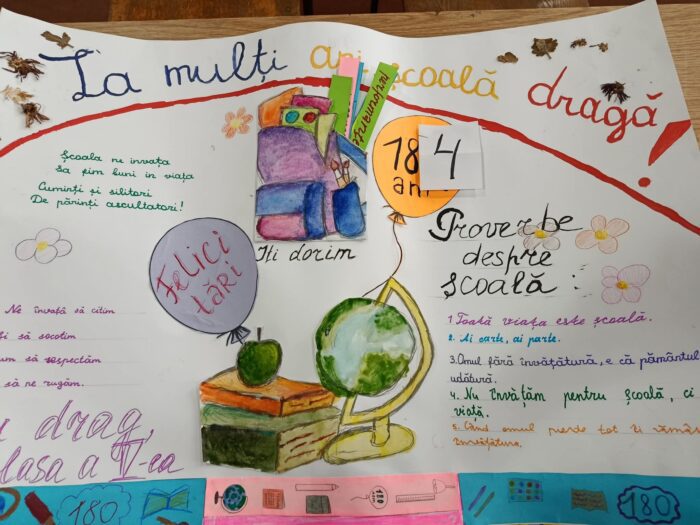 La mulți ani școală dragă!
Școala ne învața
Sa fim buni in viața
Cuminți și silitori
De părinți ascultatori!
184
ani
Felici
tări
Iti dorim
Proverbe
despre
școală:
1. Toată viața este școală.
2. Ai carte, ai parte.
3. Omul fără învățătură, e că pământul
udătură.
4. Nu învățăm pentru școală, ci
viață.
5. Când omul pierde tot îi
învățătura.
Ne învață să citim
și să socotim
um să respectăm
să ne rugăm.
drag,
lasa a V-ea
180
180
180